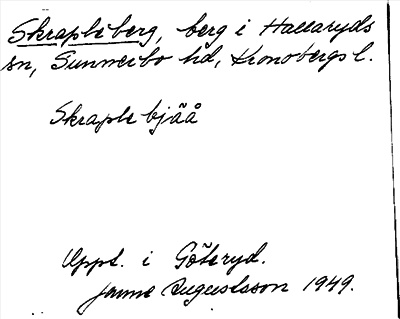 Skrapleberg, berg i Hallaryds
sn, Sunnerbo hd, Kronobergs l.
Skraple bjäå
Uppt. i Göteryd.
Janne Augustsson 1949.